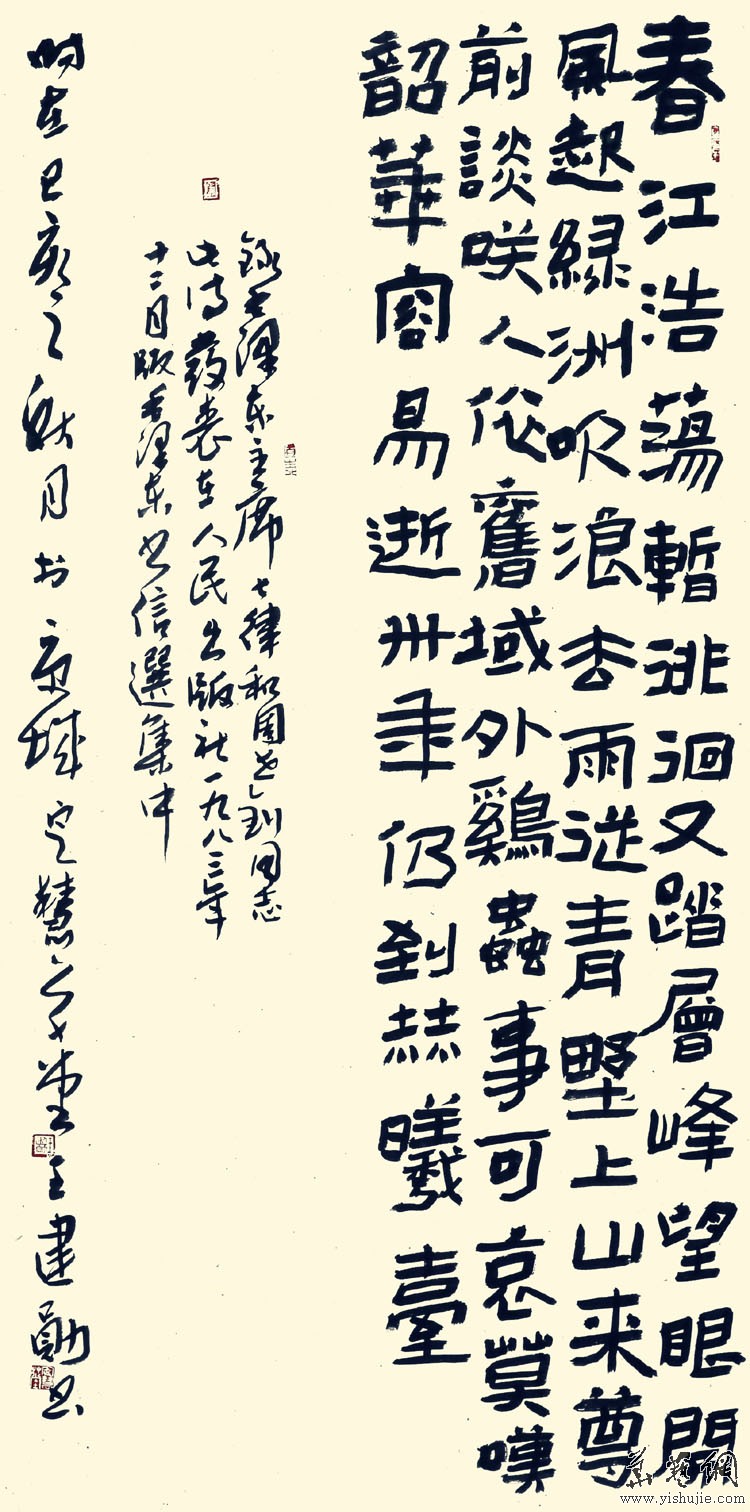 春江浩蕩暫徘徊又踏層峰望眼開
風起綠洲吹浪去雨從青野上山来尊
前談咲人依舊域外鷄蟲事可哀莫嘆
韶華容易逝卅年仍到赫曦臺
錄毛澤东主席七律和周世釗同志
此诗發表在人民出版社一九八三年
十二月版毛澤东书信選集中
时在己亥之秋月於京城定慧堂王建勛书
www.yishujie.com